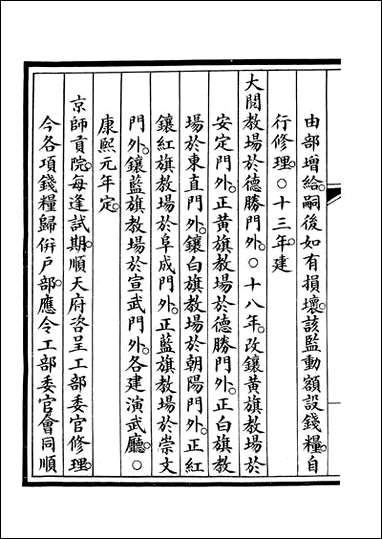 由部增給。嗣後如有損壞。該監動額設錢糧。自
行修理。○十三年。建
大閱教場於德勝門外。○十八年。改鑲黃旗教場於
安定門外。正黃旗教場於德勝門外。正白旗教
場於東直門外。鑲白旗教場於朝陽門外。正紅
鑲紅旗教場於阜成門外。正藍旗教場於崇文
門外。鑲藍旗教場於宣武門外。各建演武廳。○
康熙元年定。
京師貢院。每逢試期。順天府咨呈工部委官修理。
今各項錢糧歸併戶部。應令工部委官會同順